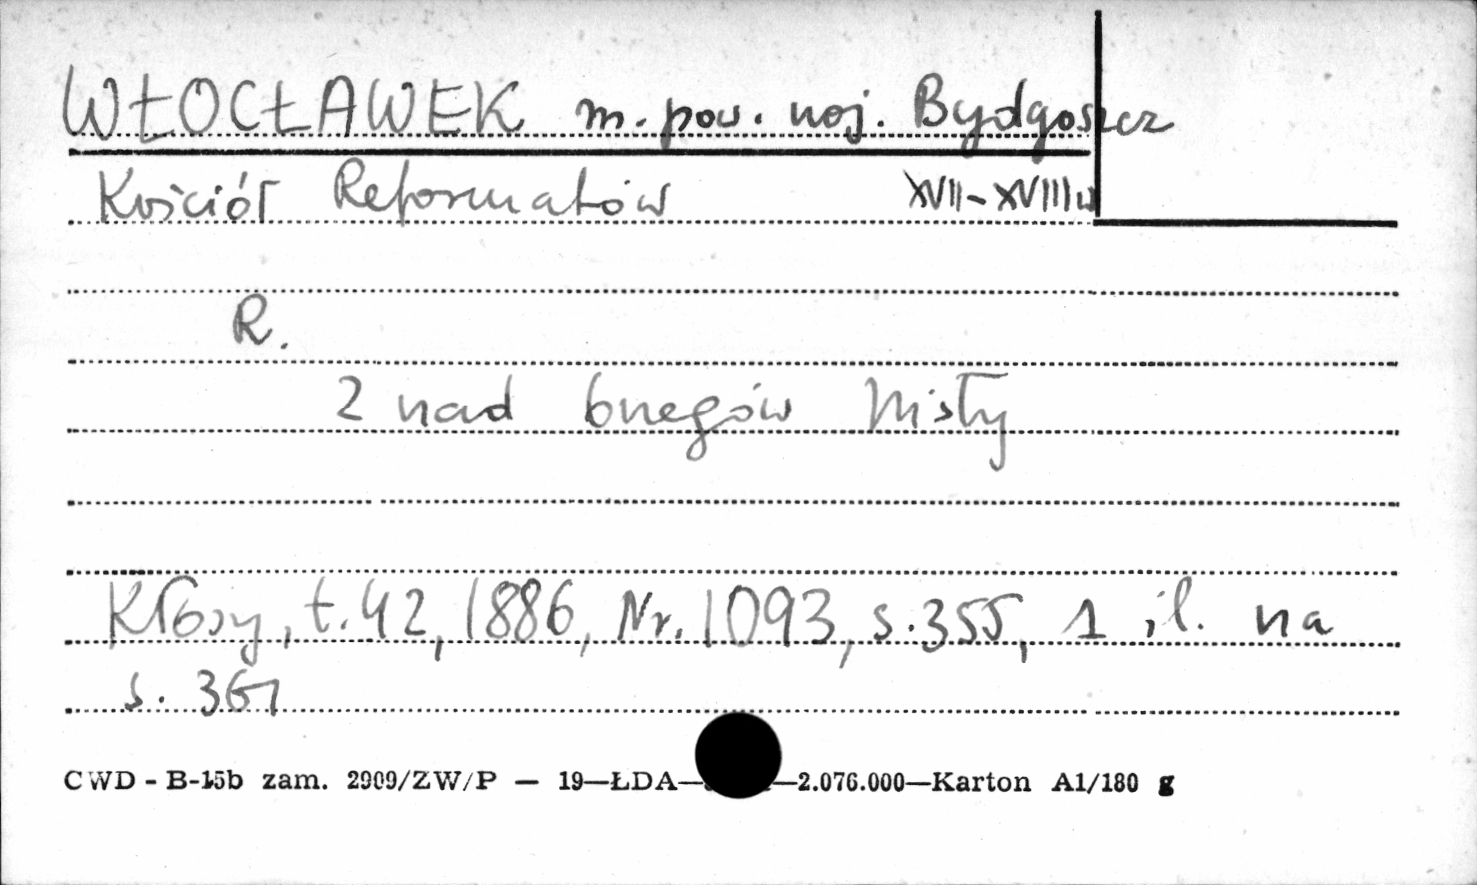 WŁOCŁAWEK m. pow. woj. Bydgoszcz
Kościół Reformatów XVII-XVIII w
R.
Z nad brzegów Wisły
Kłosy, t.42, 1886, Nr. 1093, s.355, 1 il. na
s. 361
CWD - B-15b zam. 2909/ZW/P — 19—ŁDA— —2.076.000—Karton A1/180 g